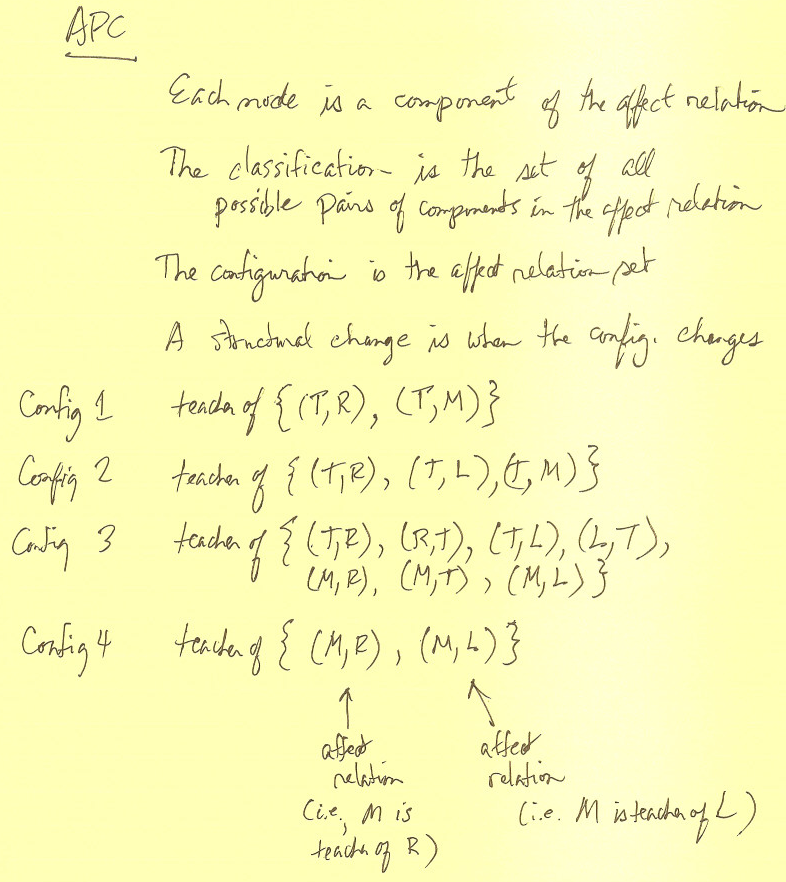 APC
Each node is a component of the affect relation
The classification is the set of all
possible pairs of components in the affect relation
The configuration is the affect relation set
A structural change is when the config. changes
Config 1 teacher of {(T,R), (T,M)}
Config 2 teacher of {(T,R), (T,L), (T,M)}
Config 3 teacher of {(T,R), (R,T), (T,L), (L,T),
(M,R), (M,T), (M,L)}
Config 4 teacher of {(M,R), (M,L)}
affect affect
relation relation
(i.e., M is (i.e. M is teacher of L)
teacher of R)